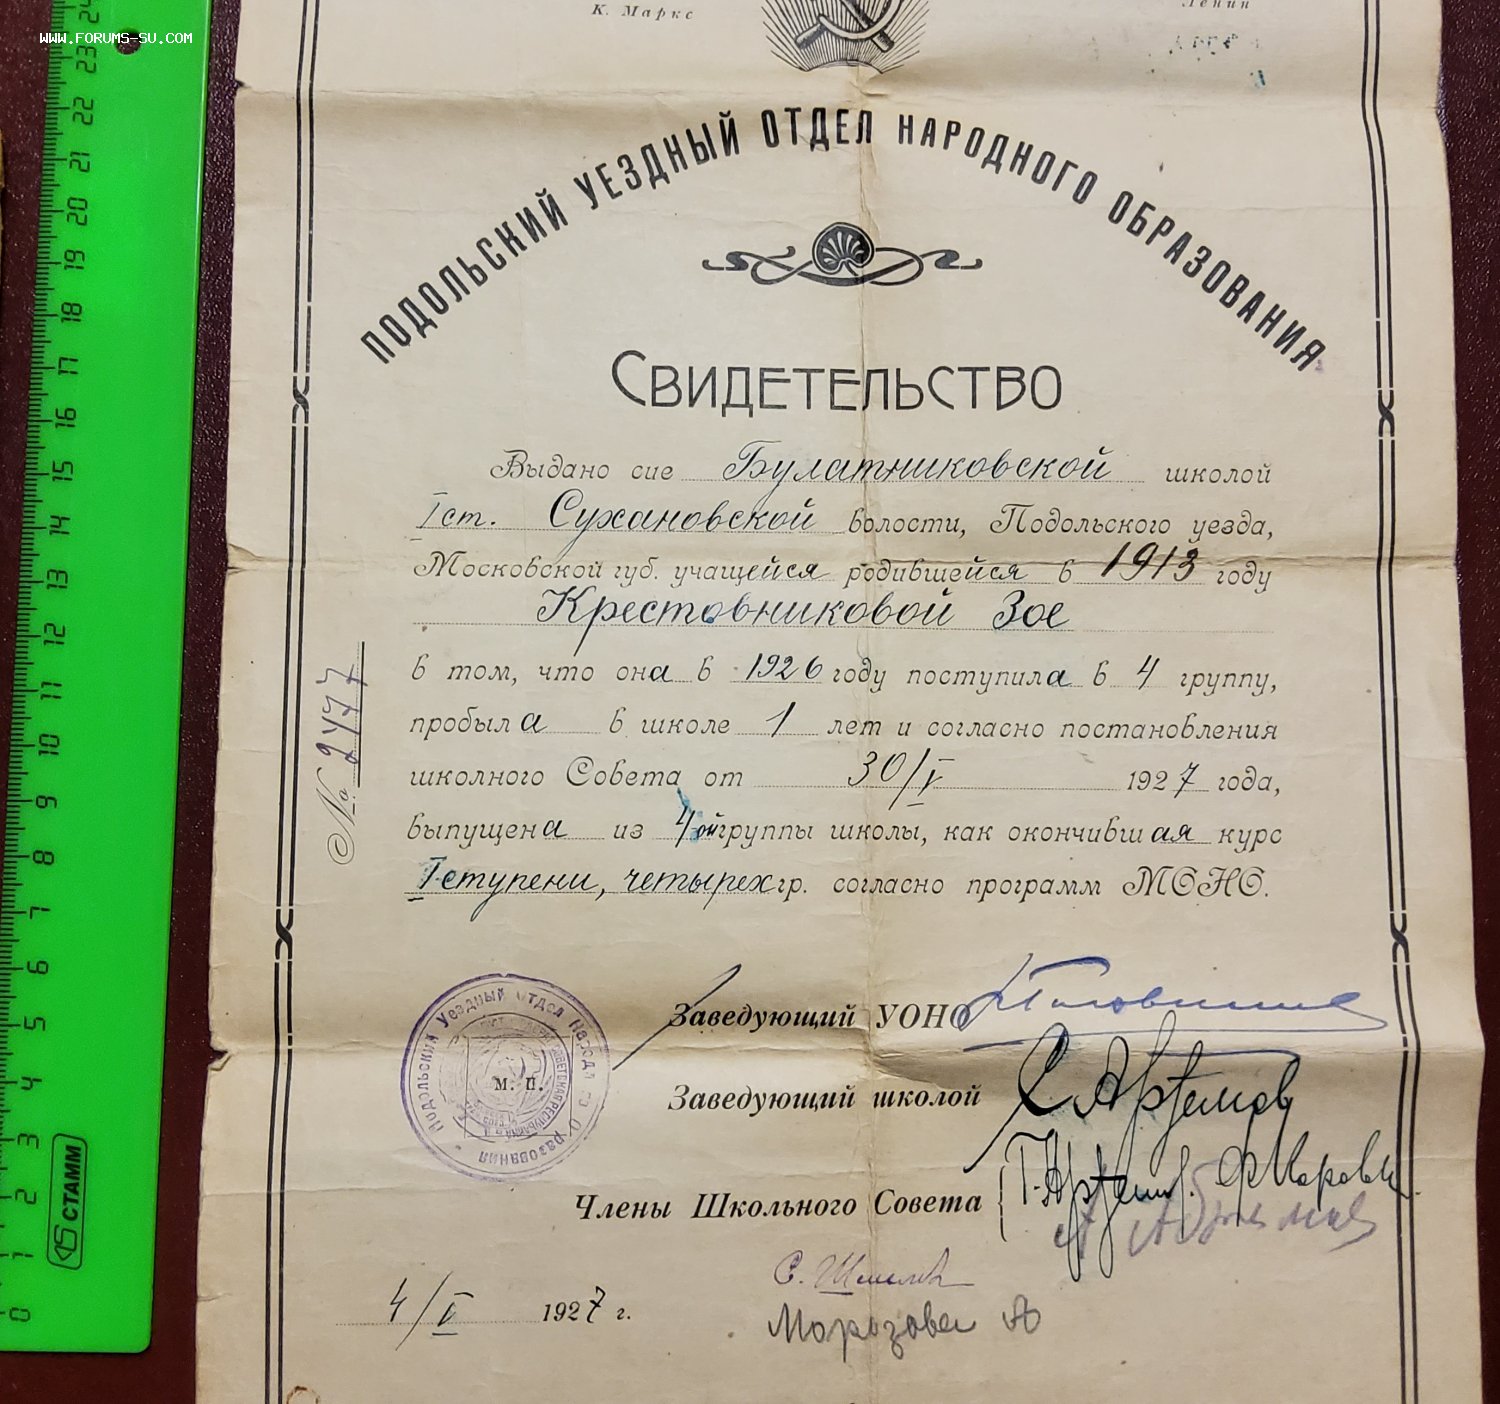 WWW.FORUMS-SU.COM
К. Маркс
Ленин
ПОДОЛЬСКИЙ УЕЗДНЫЙ ОТДЕЛ НАРОДНОГО ОБРАЗОВАНИЯ
СВИДЕТЕЛЬСТВО
Выдано сие Булатниковской школой
I ст. Сухановской волости, Подольского уезда,
Московской губ. учащейся родившейся в 1913 году
Крестовниковой Зое
в том, что она в 1926 году поступила в 4 группу,
пробыла в школе 1 лет и согласно постановления
школного Совета от 30/V 1927 года,
выпущена из 4ой группы школы, как окончившая курс
I ступени, четырех гр. согласно программ МОНО.
№ 2477
Заведующий УОНО
Заведующий школой С. Артемов
Члены Школьного Совета
Подольский Уездный Отдел Народн Образования
М. П.
4/V 1927 г.
Морозова А
24
23
22
21
20
19
18
17
16
15
14
13
12
11
10
9
8
7
6
5
4
3
2
1
0
СТАММ